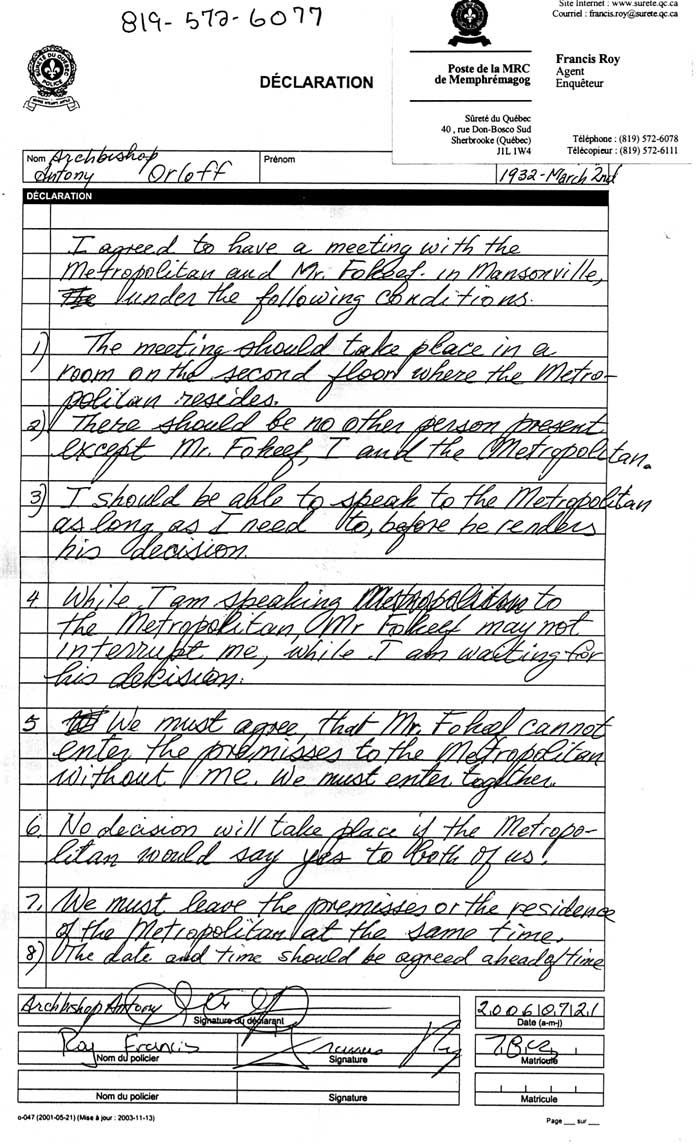 819-572-6077
Site Internet : www.surete.qc.ca
Courriel : francis.roy@surete.qc.ca
SÛRETÉ DU QUÉBEC
POLICE
DÉCLARATION
Poste de la MRC
de Memphrémagog
Francis Roy
Agent
Enquêteur
Sûreté du Québec
40 , rue Don-Bosco Sud
Sherbrooke (Québec)
J1L 1W4
Téléphone : (819) 572-6078
Télécopieur : (819) 572-6111
Nom Archbishop
Antony Orloff
Prénom
1932-March 2nd
DÉCLARATION
I agreed to have a meeting with the
Metropolitan and Mr. Fokeef. in Mansonville,
under the following conditions.
1) The meeting should take place in a
room on the second floor where the Metro-
politan resides.
2) There should be no other person present
except Mr. Fokeef, I and the Metropolitan.
3) I should be able to speak to the Metropolitan
as long as I need to, before he renders
his decision
4 While I am speaking to
the Metropolitan, Mr Fokeef may not
interrupt me, while I am waiting for
his decision.
5 We must agree, that Mr. Fokeef cannot
enter the premisses to the Metropolitan
without me. We must enter together.
6. No decision will take place if the Metropo-
litan would say yes to both of us.
7. We must leave the premisses or the residence
of the Metropolitan at the same time.
8) The date and time should be agreed ahead of time
Archbishop Antony
Signature du déclarant
20060721
Date (a-m-j)
Roy Francis
Nom du policier
Signature
Matricule
Nom du policier
Signature
Matricule
o-047 (2001-05-21) (Mise à jour : 2003-11-13)
Page ___ sur ___